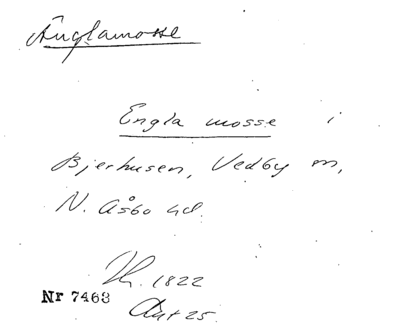 Änglamosse
Engla mosse i
Bjerhusen, Vedby sn,
N. Åsbo hd.
1822
Nr 7463
Akt 25.